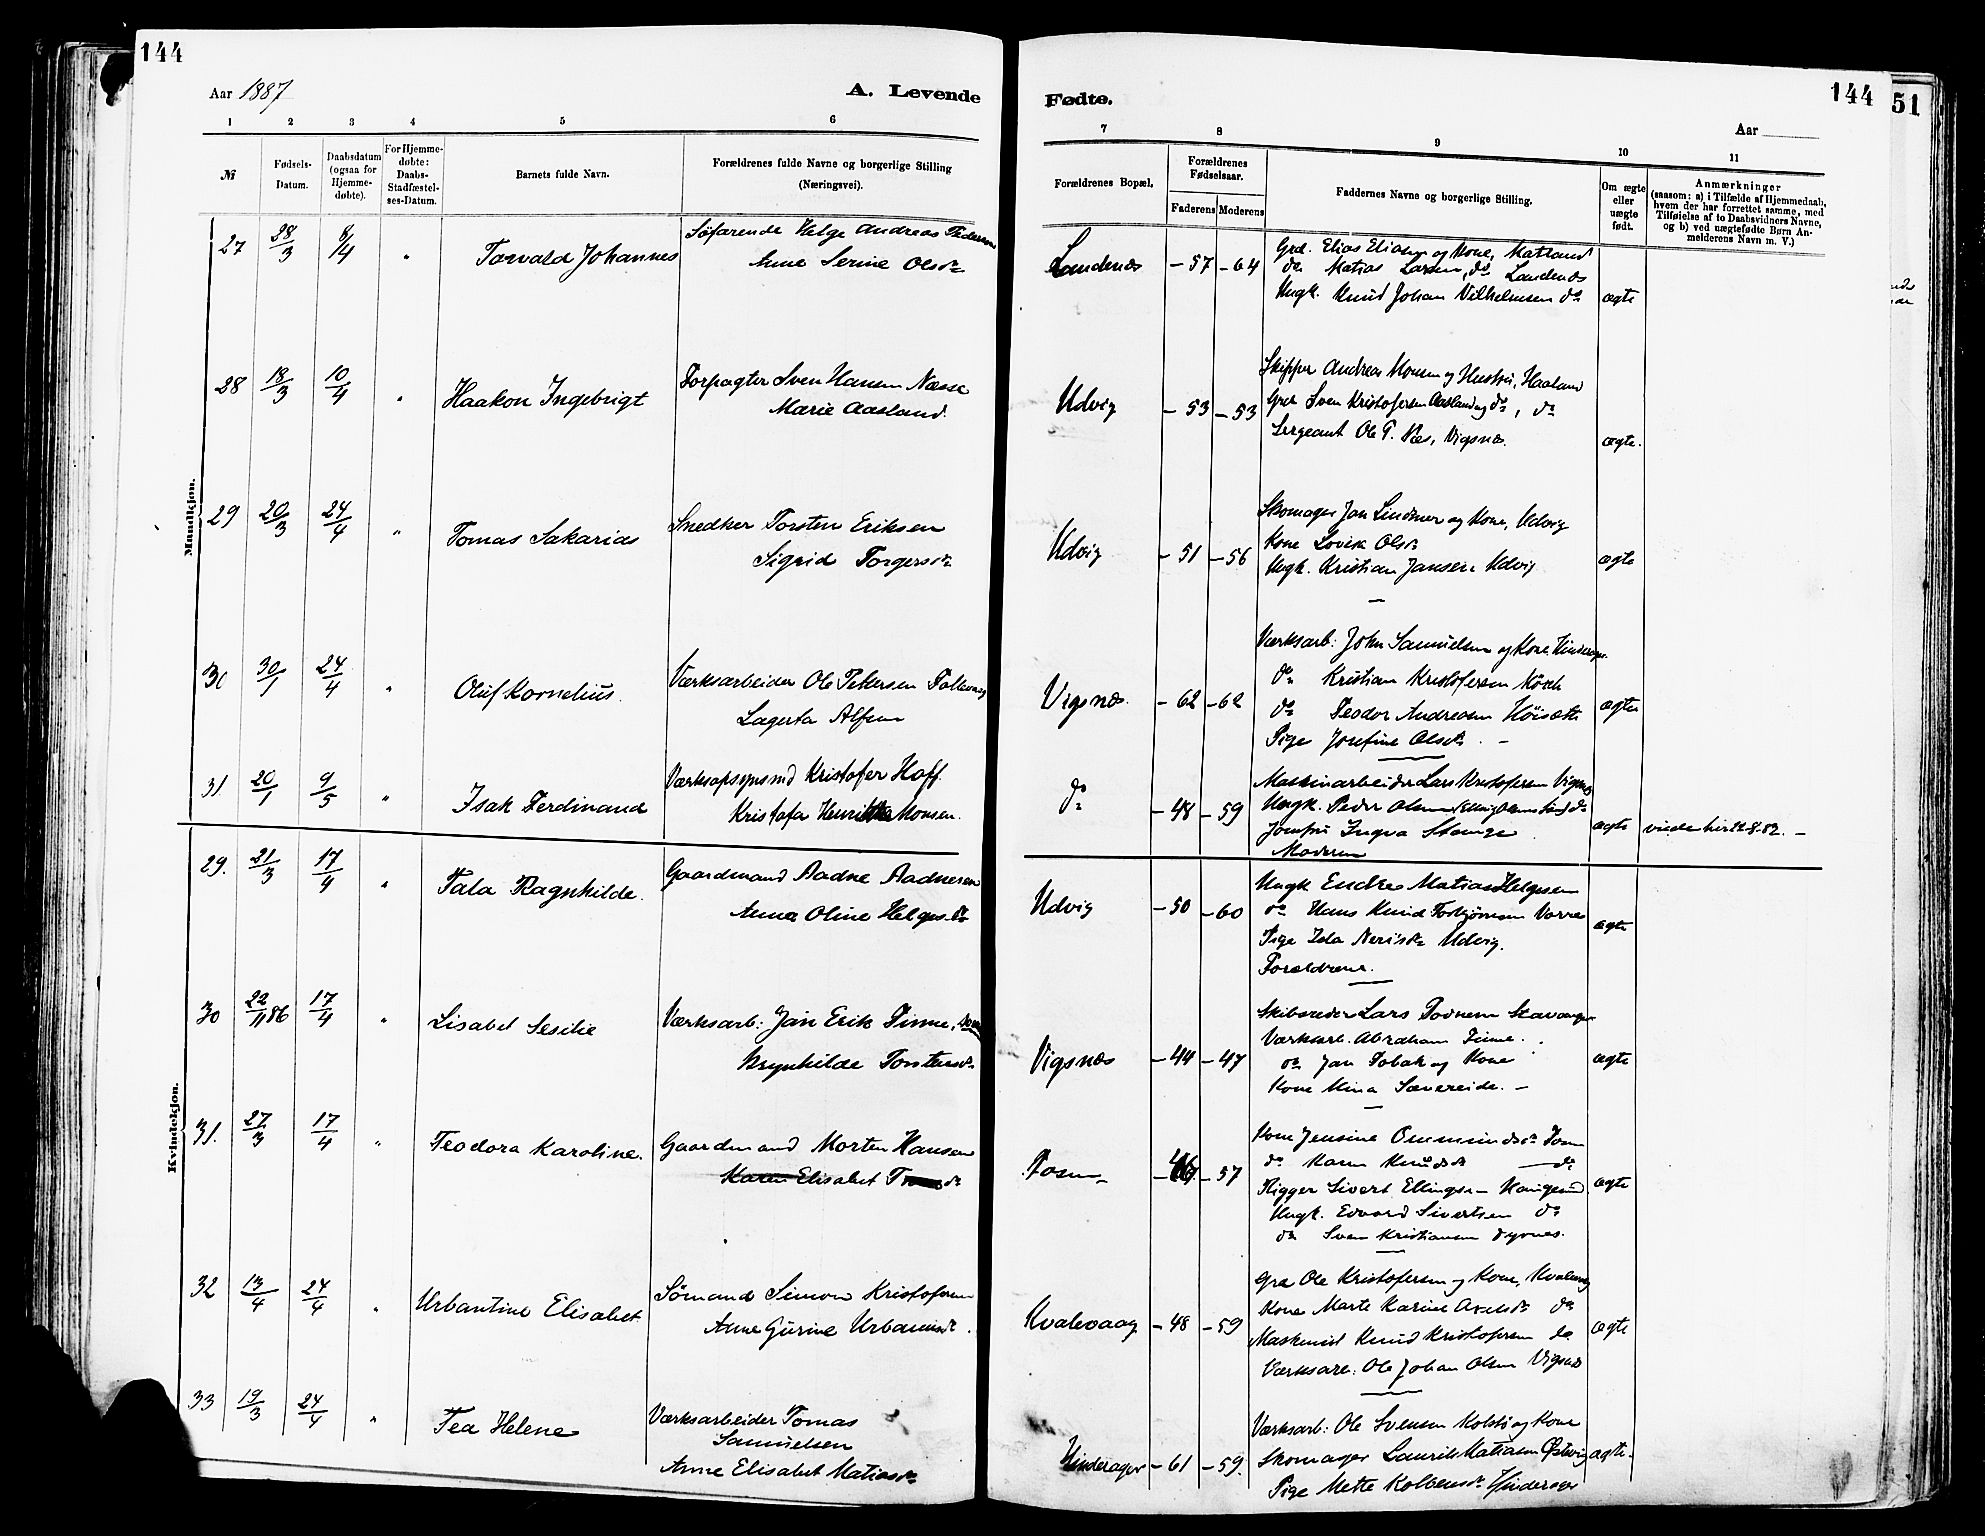 144
Aar 1887
A. Levende
1 2 3 4 5 6
№
Fødsels-Datum.
Daabsdatum (ogsaa for Hjemme-døbte).
For Hjemme-døbte: Daabs-Stadfæstel-ses-Datum.
Barnets fulde Navn.
Forældrenes fulde Navne og borgerlige Stilling (Næringsvei).
Mandkjøn.
27 28/3 8/4 " Torvald Johannes
Søfarende Helge Andreas Pedersen
Anne Serine Olsdr
28 18/3 10/4 " Haakon Ingebrigt
Forpagter Sven Hansen Næsse
Marie Aasland.
29 20/3 24/4 " Tomas Sakarias
Snedker Torsten Eriksen
Sigrid Torgersdr
30 30/1 24/4 " Oluf Kornelius.
Værksarbeider Ole Petersen
Lagerta Alfsen
31 20/1 9/5 " Isak Ferdinand
Værksopsynsmd Kristofer Hoff.
Kristofa Henrikka Monsen.
Kvindekjøn.
29. 21/3 17/4 " Tala Ragnhilde.
Gaardmand Aadne Aadnesen
Anna Oline Helgesdr
30 22/11 86 17/4 " Lisabet Sesilie
Værksarb: Jan Erik Finne,
Brynhilde Torstensdr
31. 27/3 17/4 " Teodora Karoline.
Gaardmand Morten Hansen
Karen Elisabet
32 13/4 24/4 " Urbantine Elisabet
Sømand Simon Kristofersen
Anne Gurine Urbanusdr.
33 19/3 24/4 " Tea Helene
Værksarbeider Tomas
Samuelsen
Anne Elisabet Matiasdr
144
51
Fødte.
Aar
7 8 9 10 11
Forældrenes Bopæl.
Forældrenes Fødselsaar.
Faderens Moderens
Faddernes Navne og borgerlige Stilling.
Om ægte eller uægte født.
Anmærkninger
(saasom: a) i Tilfælde af Hjemmedaab,
hvem der har forrettet samme, med
Tilføielse af to Daabsvidners Navne,
og b) ved uægtefødte Børn An-
melderens Navn m. V.)
Landenæs - 57 - 64
Grd. Elias Eliasen og Kone, Matland
do Matias Larsen, do Landenæs
Ungk. Knud Johan Vilhelmsen do
ægte
Udvig - 53 - 53
Skipper Andreas Monsen og Hustru, Haaland
Grd Sven Kristofersen Aasland og do, do
Sergeant Ole T. Næs, Vigsnæs.
ægte.
Udvig - 51 - 56
Skomager Jan Lindtner og Kone, Udvig
Kone Lovise Olsdr
Ungk. Kristian Jansen Udvig
ægte
Vigsnæs. - 62 - 62
Værksarb: John Samuelsen og Kone, Hinderager
do Kristian Kristofersen
do Teodor Andreasen
Pige Josefine Olsdr. -
ægte
do - 48 - 59
Maskinarbeider Lars Kristofersen Vigsnæs
Ungk. Peder Olsen do
Jomfru Ingva Stange
Moderen
ægte viede her 22-8-82. -
Udvig - 50 - 60
Ungk Endre Matias Helgesen
do Hans Knud Torbjørnsen
Pige Ida Nerisdr Udvig.
Forældrene.
ægte
Vigsnæs - 44 - 47
Skibsreder Lars Stavanger
Værksarb. Abraham Finne.
do Jan Tobak og Kone
Kone Mina Sævereide. -
ægte
Fosen - 57
Kone Jensine Ommundsdr Fosen
do Karen Knudsdr - do
Rigger Sivert Ellingsen - Haugesund
Ungk. Edvard Sivertsen do
do Sven Kristiansen Dyrnes.
ægte
Kvalevaag - 48 - 59
Grd Ole Kristofersen og Kone, Kvalevaag
Kone Marte Karine do
Maskinist Knud Kristofersen do
Værksarb. Ole Johan Olsen Vigsnæs
ægte
Hinderager - 61 - 59.
Værksarb: Ole Svensen Kolstø og Kone
Skomager Laurits Matiasen Østvig
Pige Mette Kolbensdr Hinderager
ægte.